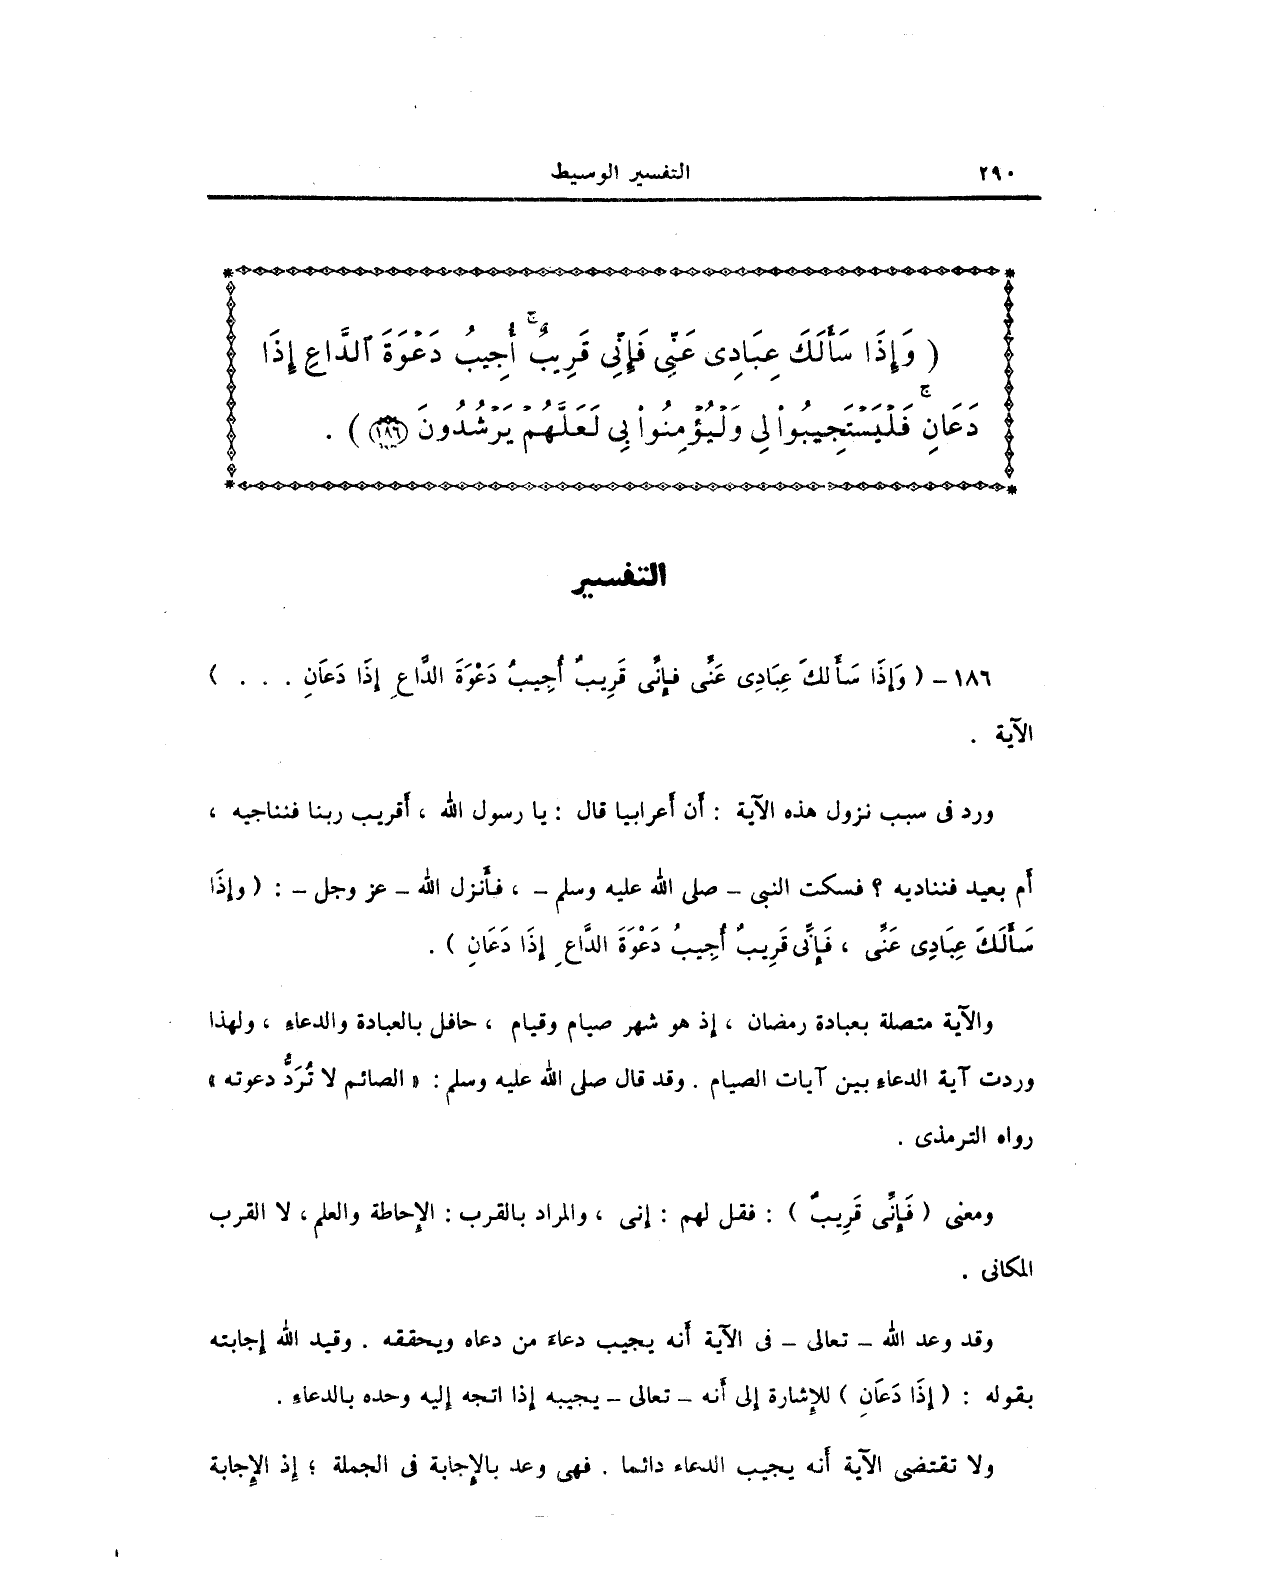 ٢٩٠ التفسير الوسيط
( وَإِذَا سَأَلَكَ عِبَادِى عَنِّى فَإِنِّى قَرِيبٌ ۖ أُجِيبُ دَعْوَةَ ٱلدَّاعِ إِذَا
دَعَانِ ۖ فَلْيَسْتَجِيبُوا۟ لِى وَلْيُؤْمِنُوا۟ بِى لَعَلَّهُمْ يَرْشُدُونَ ﴿١٨٦﴾ ) .
التفسير
١٨٦ – ( وَإِذَا سَأَلَكَ عِبَادِى عَنِّى فَإِنِّى قَرِيبٌ أُجِيبُ دَعْوَةَ الدَّاعِ إِذَا دَعَانِ . . . )
الآية .
ورد فى سبب نزول هذه الآية : أن أعرابيا قال : يا رسول الله ، أقريب ربنا فنناجيه ،
أم بعيد فنناديه ؟ فسكت النبى – صلى الله عليه وسلم – ، فأنزل الله – عز وجل – : ( وإِذَا
سَأَلَكَ عِبَادِى عَنِّى ، فَإِنِّى قَرِيبٌ أُجِيبُ دَعْوَةَ الدَّاعِ إِذَا دَعَانِ ) .
والآية متصلة بعبادة رمضان ، إذ هو شهر صيام وقيام ، حافل بالعبادة والدعاء ، ولهذا
وردت آية الدعاء بين آيات الصيام . وقد قال صلى الله عليه وسلم : « الصائم لا تُرَدُّ دعوته »
رواه الترمذى .
ومعنى ( فَإِنِّى قَرِيبٌ ) : فقل لهم : إنى ، والمراد بالقرب : الإحاطة والعلم ، لا القرب
المكانى .
وقد وعد الله – تعالى – فى الآية أنه يجيب دعاءَ من دعاه ويحققه . وقيد الله إجابته
بقوله : ( إِذَا دَعَانِ ) للإشارة إلى أنه – تعالى – يجيبه إذا اتجه إليه وحده بالدعاء .
ولا تقتضى الآية أنه يجيب الدعاء دائما . فهى وعد بالإجابة فى الجملة ؛ إذ الإجابة